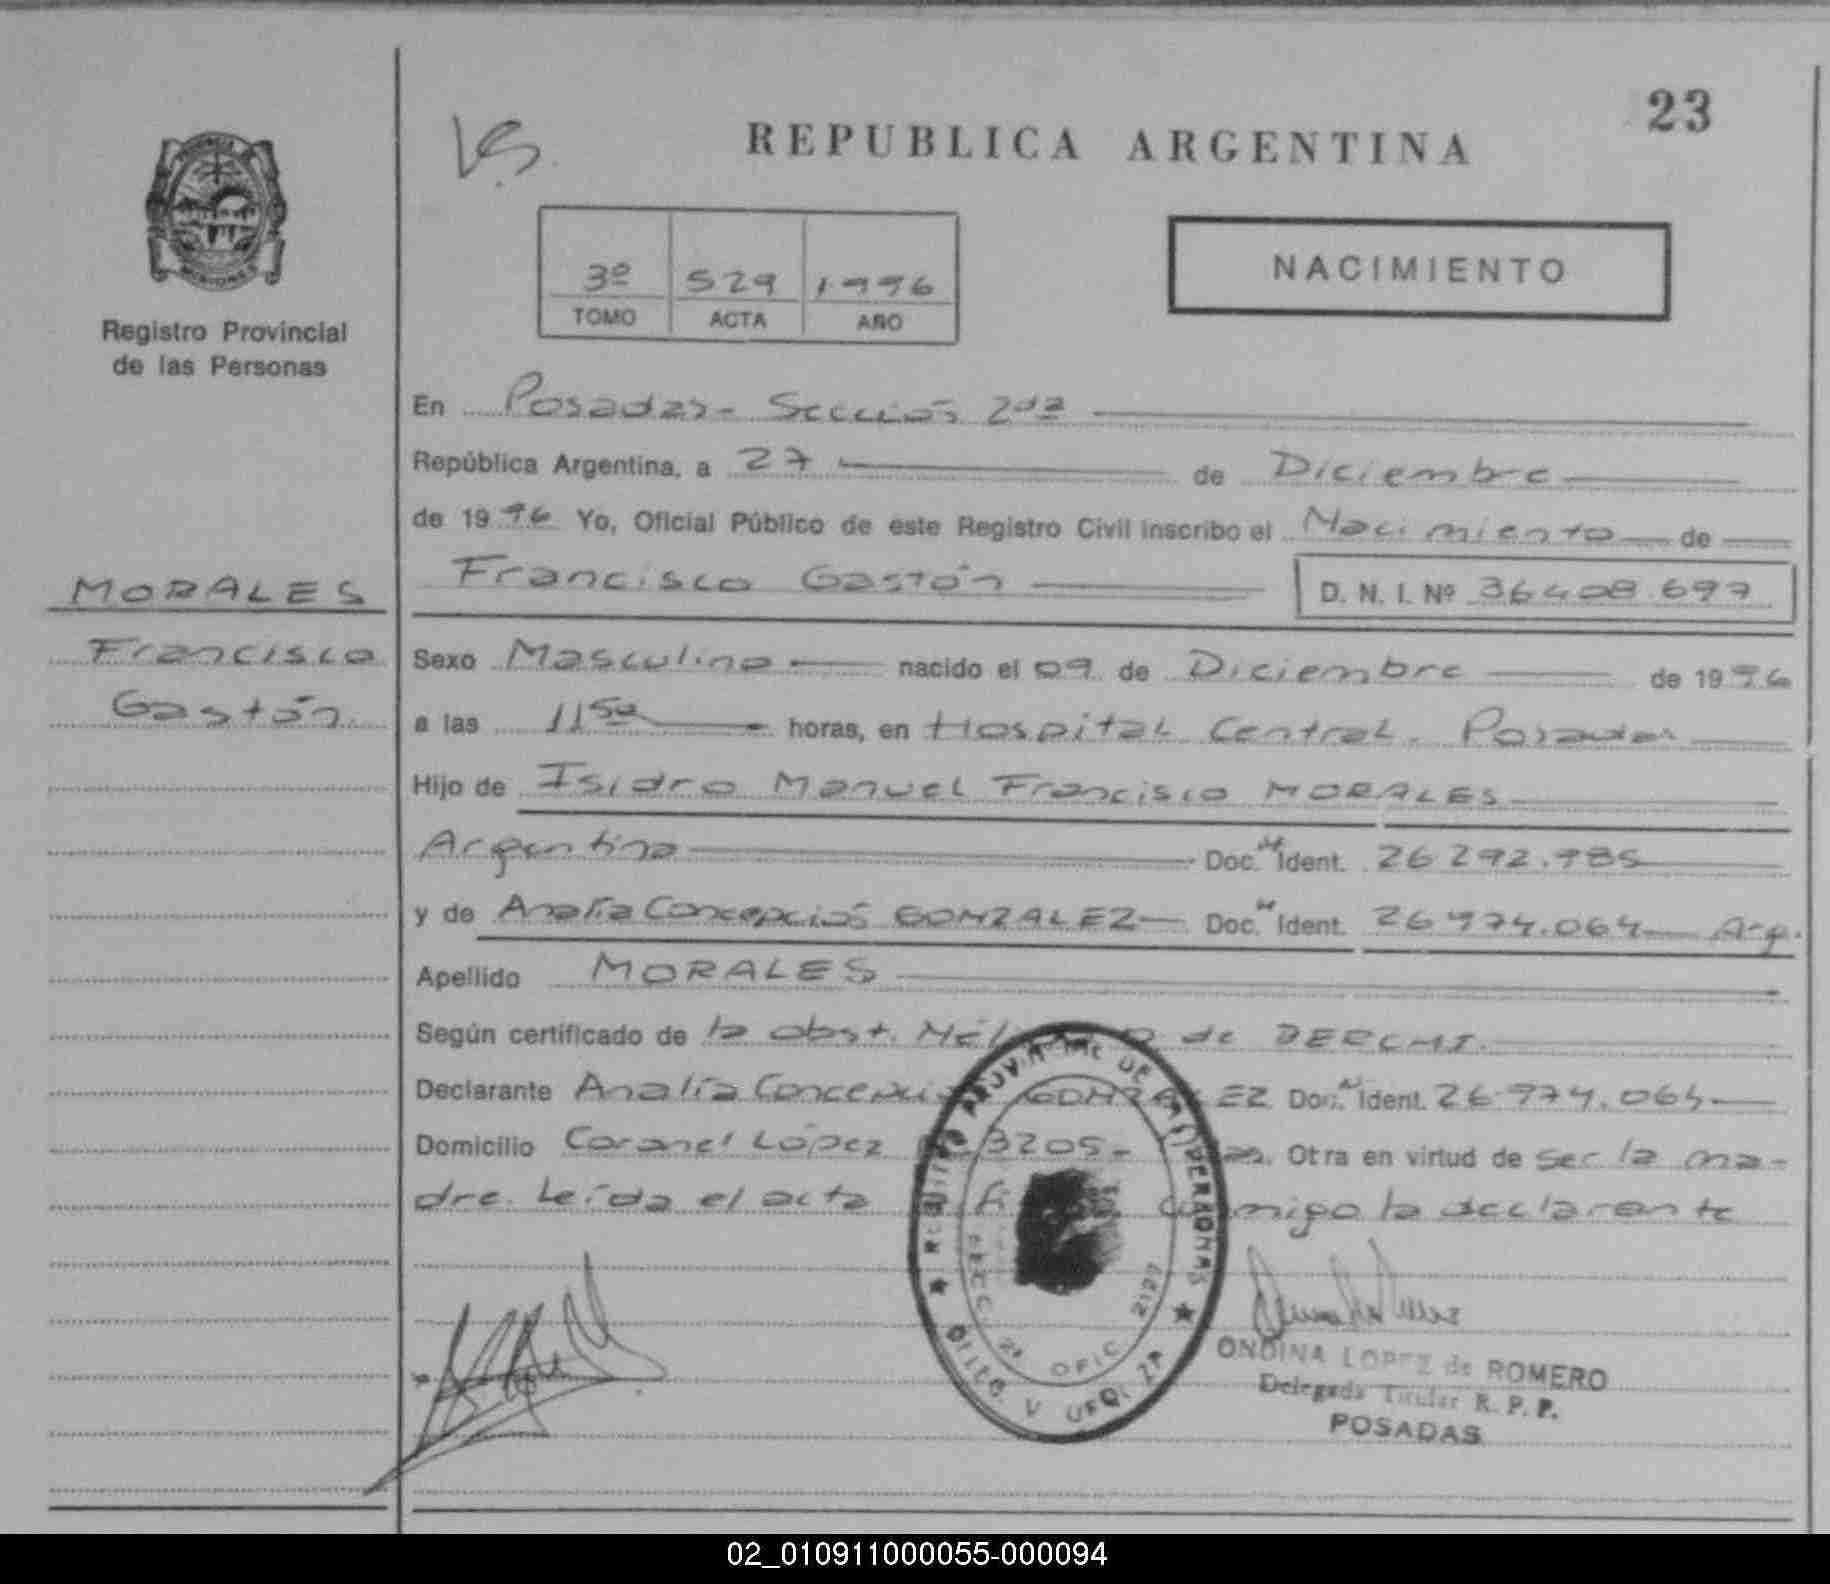 23
REPUBLICA ARGENTINA
NACIMIENTO
3º 529 1996
TOMO ACTA AÑO
Registro Provincial
de las Personas
MORALES
Francisco
Gastón
En Posadas - Sección 2da
República Argentina, a 27 de Diciembre
de 1996 Yo, Oficial Público de este Registro Civil inscribo el Nacimiento de
Francisco Gastón D. N. I. Nº 36408.697
Sexo Masculino nacido el 09 de Diciembre de 1996
a las 11 50 horas, en Hospital Central. Posadas
Hijo de Isidro Manuel Francisco MORALES
Argentino Doc. Ident. 26 292.985
y de Analía Concepción GONZALEZ Doc. Ident. 26 974.064 Arg.
Apellido MORALES
Según certificado de la obst. de
Declarante Analía Concepción GONZALEZ Doc. Ident. 26 974.064
Domicilio Coronel López 3205 - Otra en virtud de ser la ma-
dre. Leída el acta conmigo la declarante
REGISTRO PROVINCIAL DE LAS PERSONAS
SECC. 2ª OFIC.
ONDINA LOPEZ de ROMERO
Delegada Titular R. P. P.
POSADAS
02_010911000055-000094